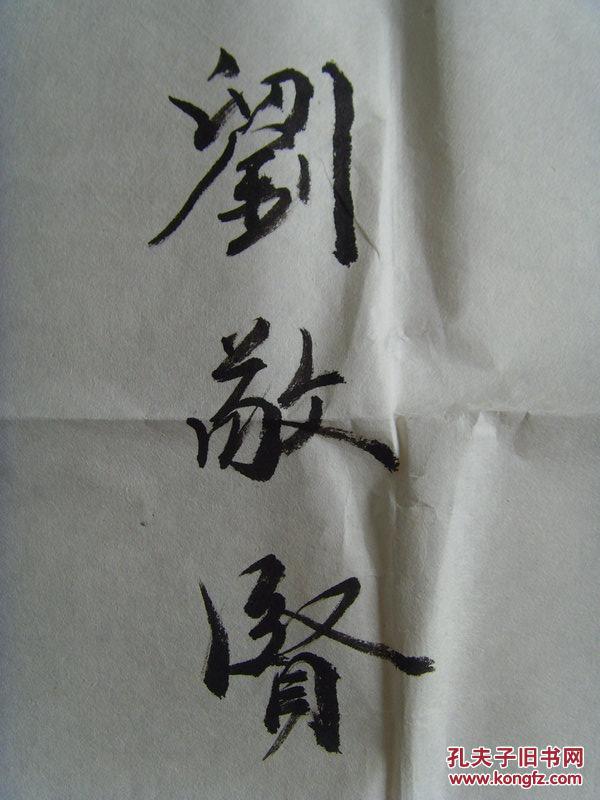 劉敬賢
孔夫子旧书网
www.kongfz.com